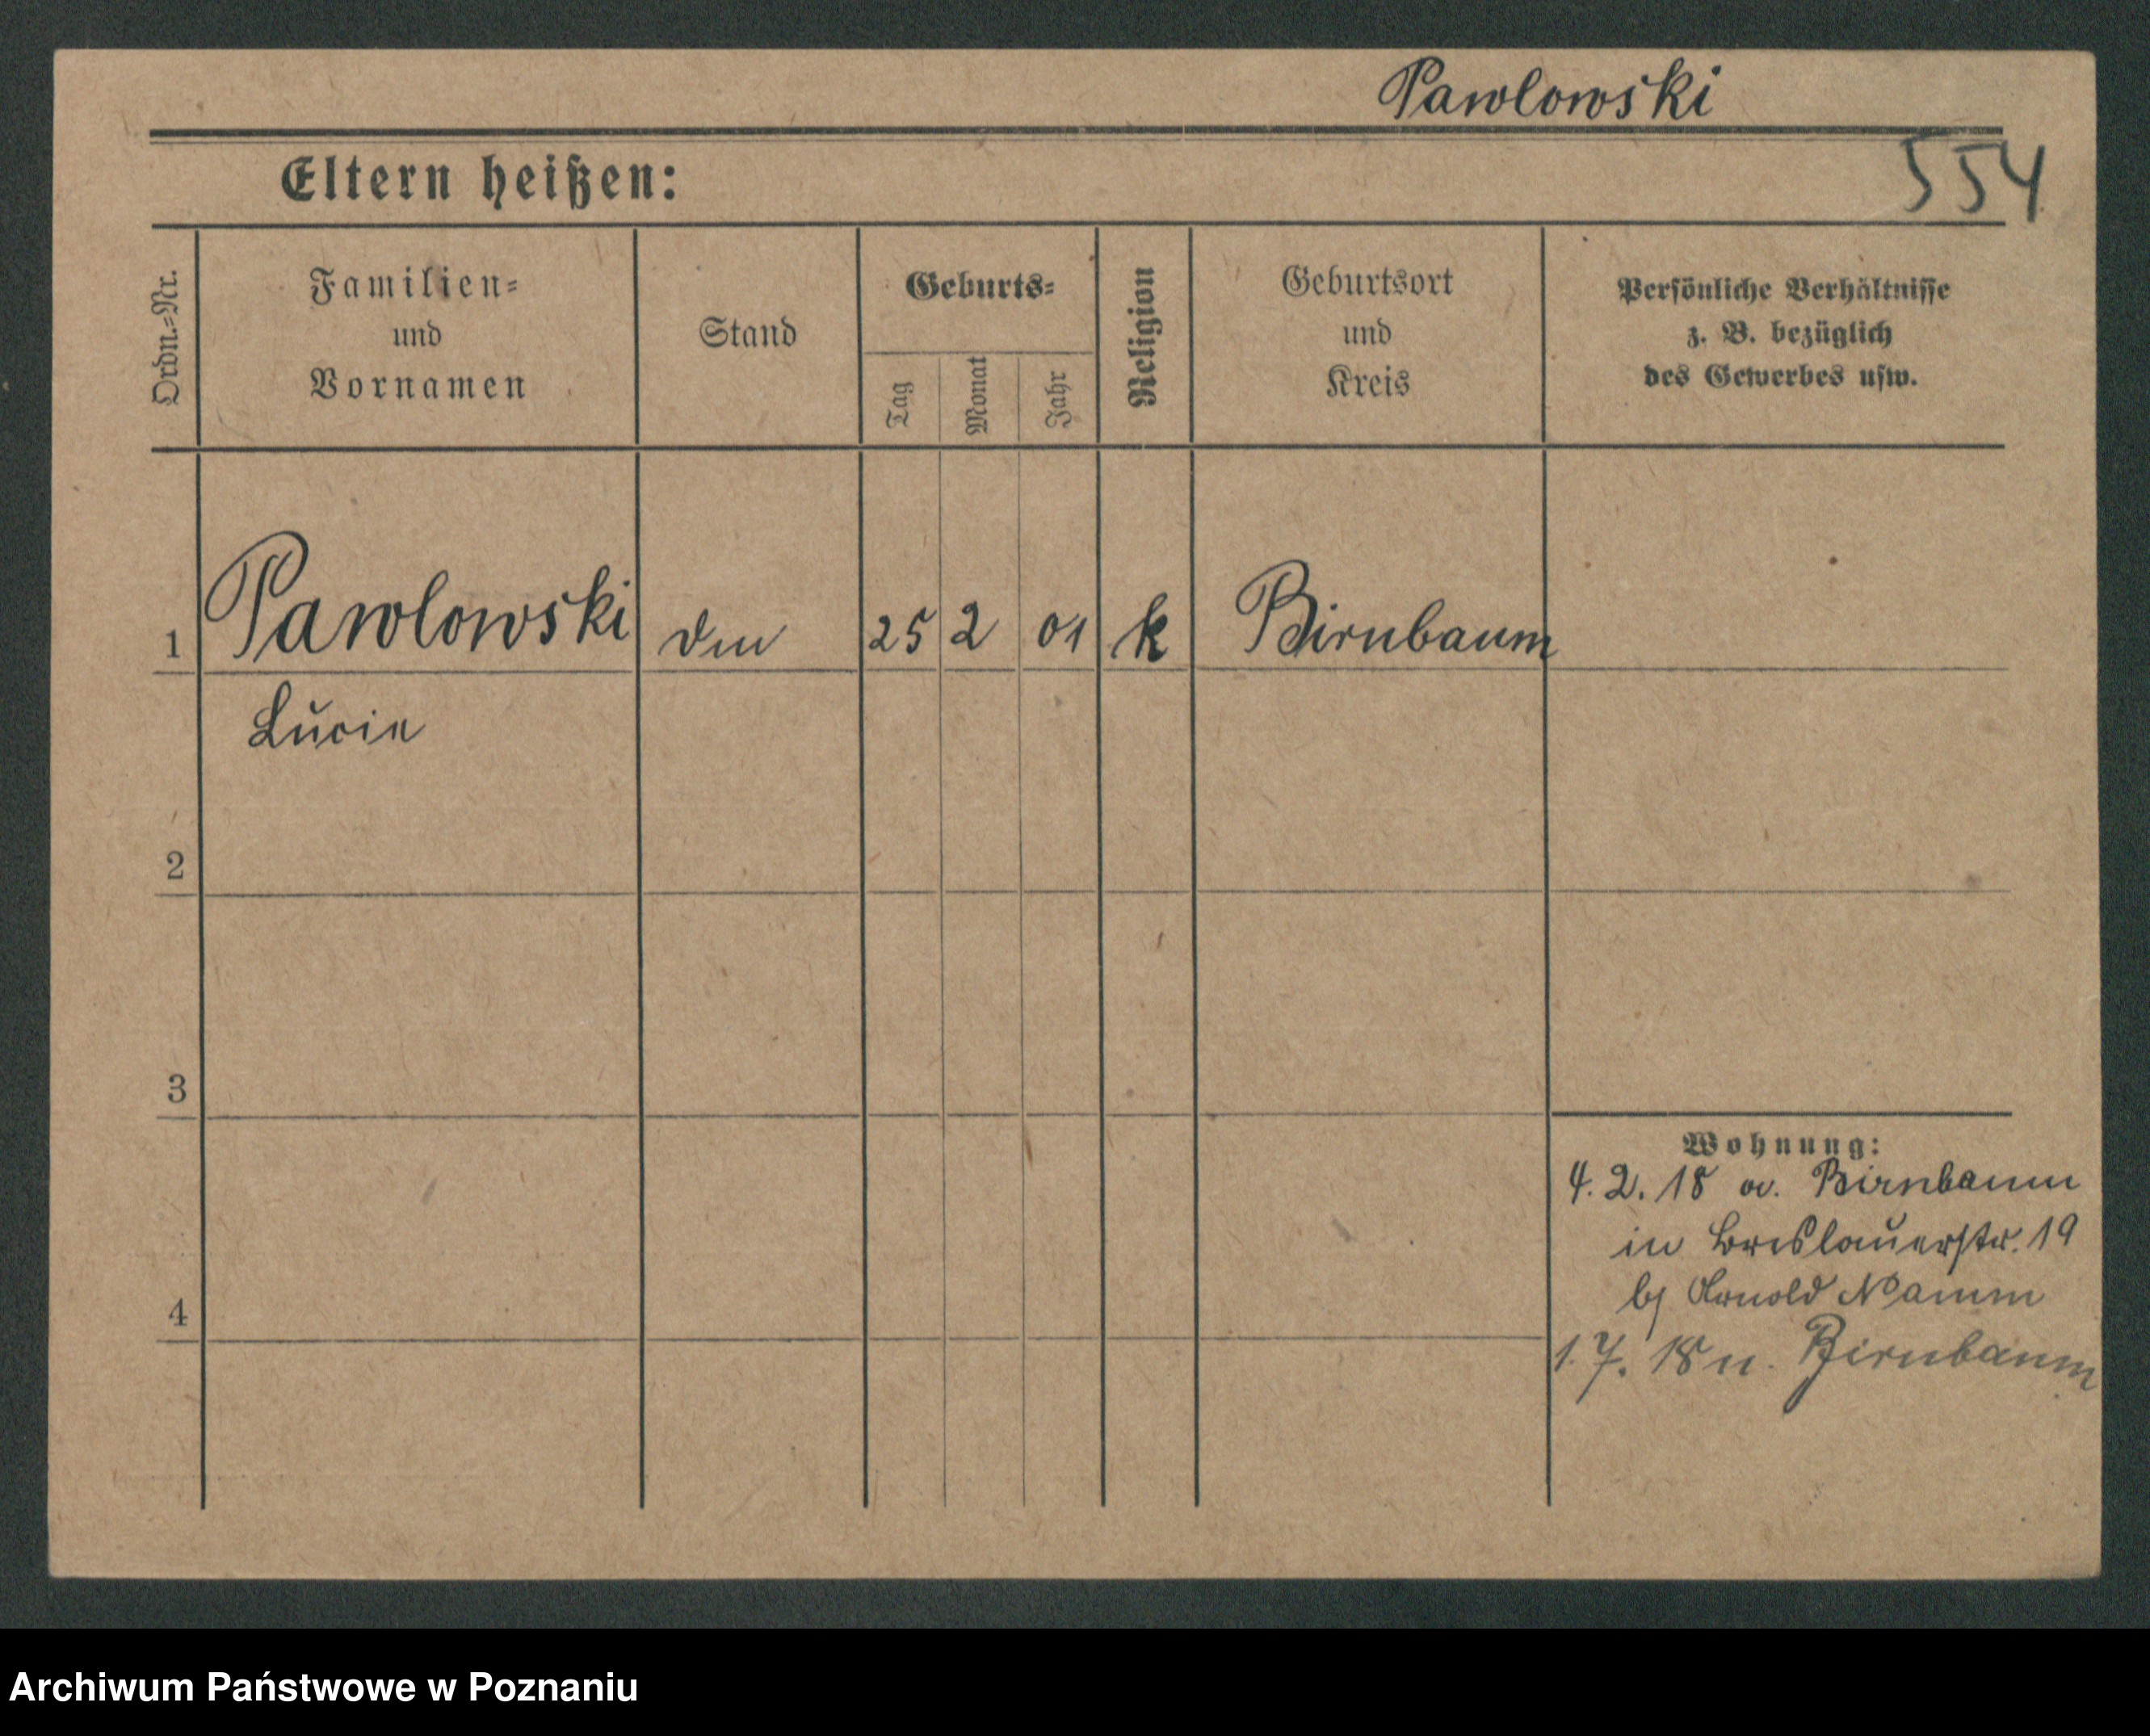 Pawlowski
554
Eltern heißen:
Ordn.-Nr.
Familien-
und
Vornamen
Stand
Geburts-
Tag
Monat
Jahr
Religion
Geburtsort
und
Kreis
Persönliche Verhältnisse
z. B. bezüglich
des Gewerbes usw.
1 Pawlowski 25 2 01 k Birnbaum
Lucie
2
3
4
Wohnung:
4. 2. 18 v. Birnbaum
in Breslauerstr. 19
bj Arnold
1. 7. 18 n. Birnbaum
Archiwum Państwowe w Poznaniu